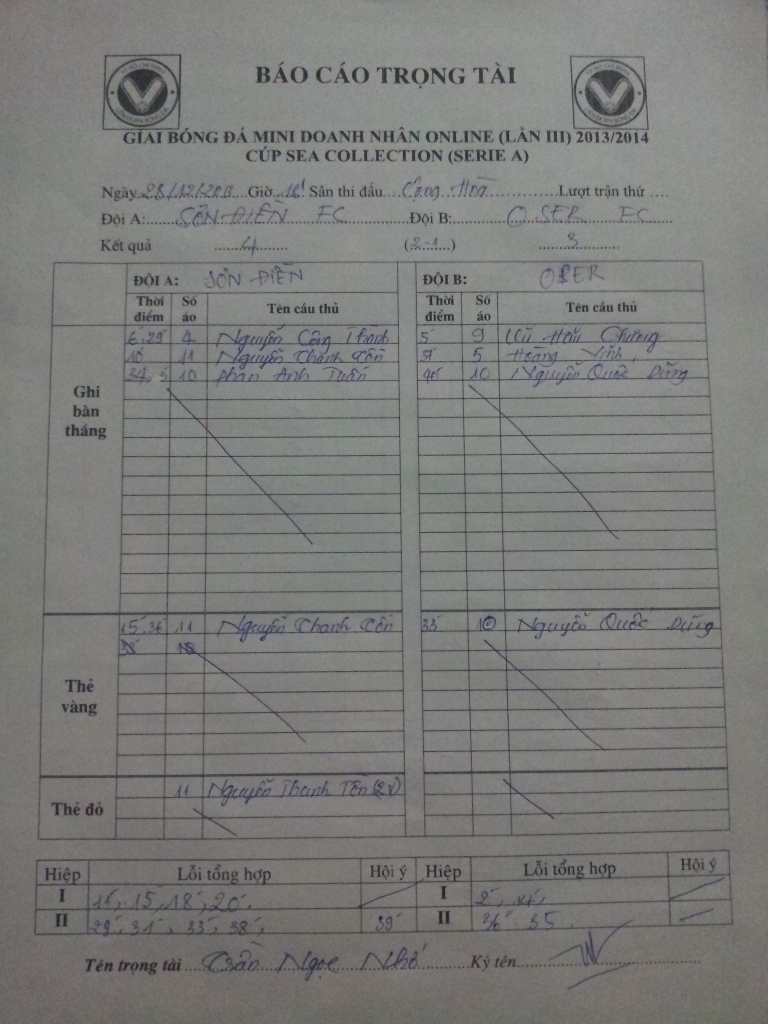 BÁO CÁO TRỌNG TÀI
GIẢI BÓNG ĐÁ MINI DOANH NHÂN ONLINE (LẦN III) 2013/2014
CÚP SEA COLLECTION (SERIE A)
Ngày 28/12/2013 Giờ 16' Sân thi đấu Cộng Hòa Lượt trận thứ ....
Đội A: SƠN ĐIỀN FC Đội B: O SER FC
Kết quả 4 (2-1) 3
ĐỘI A: SƠN ĐIỀN ĐỘI B: OSER
Thời điểm Số áo Tên cầu thủ Thời điểm Số áo Tên cầu thủ
Ghi bàn thắng
6', 29' 4 Nguyễn Công Thành 5' 9 Vũ Hữu Chương
10' 11 Nguyễn Thanh Tồn 5 Hoàng Vinh
10 Phan Anh Tuấn 40' 10 Nguyễn Quốc Dũng
Thẻ vàng
15', 36' 11 Nguyễn Thanh Tồn 33' 10 Nguyễn Quốc Dũng
Thẻ đỏ
11 Nguyễn Thanh Tồn (2V)
Hiệp Lỗi tổng hợp Hội ý Hiệp Lỗi tổng hợp Hội ý
I 15', 18', 20' I 2'
II 29', 31', 33', 38' 39' II 36' 35'
Tên trọng tài Trần Ngọc Nhớ Ký tên